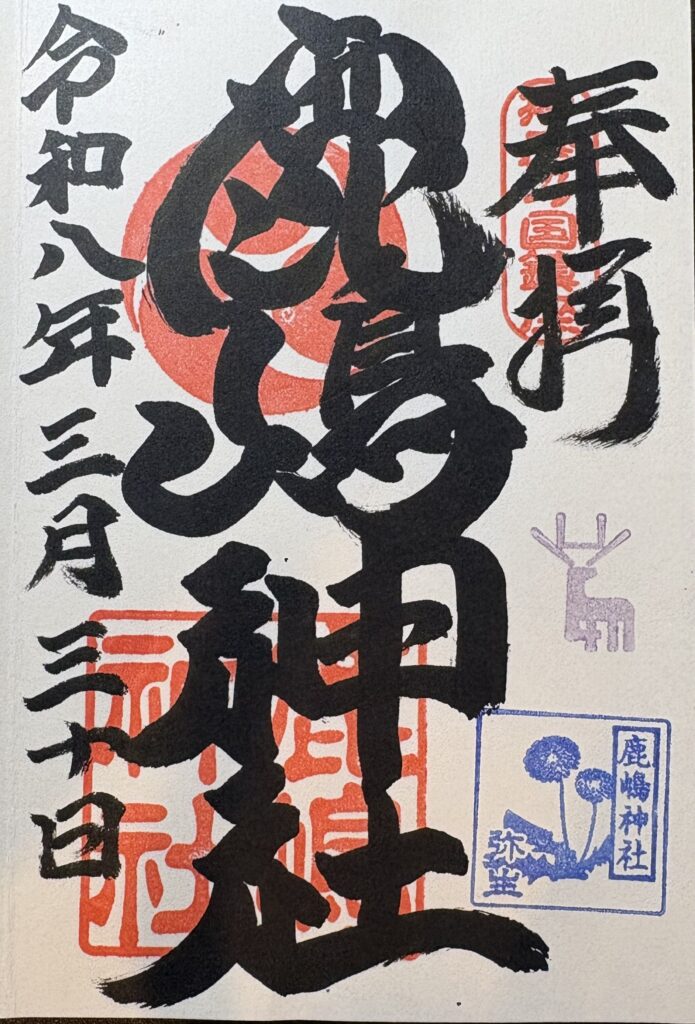 奉拝
鹿嶋神社
令和八年三月三十日
国鎮
鹿嶋
神社
鹿嶋神社
弥生